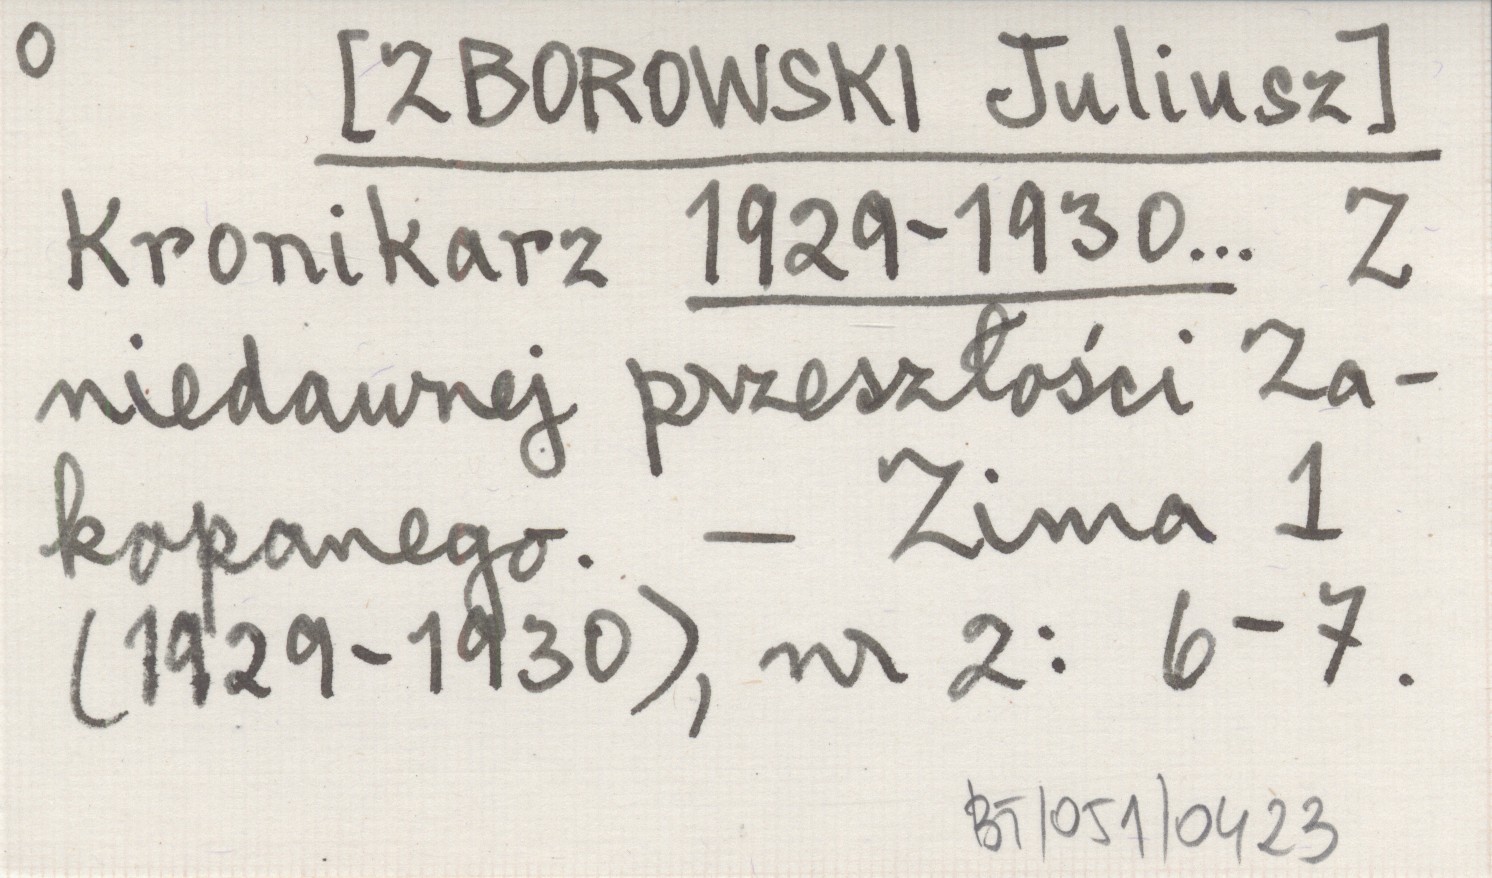 O
[ZBOROWSKI Juliusz]
Kronikarz 1929-1930... Z
niedawnej przeszłości Za-
kopanego. — Zima 1
(1929-1930), nr 2: 6-7.
BT/051/0423